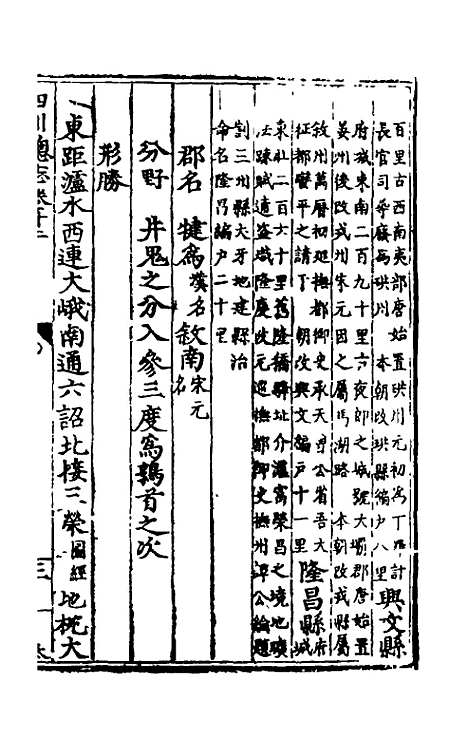 百里古西南夷部唐始置珙州元初為下罗計
長官司 為珙州 本朝改珙縣編户八里 興文縣
府城東南二百九十里古夜郎之城號大壩郡唐始置
晏州後改戎州宋元因之屬馬湖路 本朝改戎縣屬
敘州萬曆初巡撫都御史 公省吾大
征都蠻平之請于 朝改興文編户十一里 隆昌縣府城
東北二百六十里舊隆橋驛址介瀘富榮昌之境地曠
法疎賊遁盗熾隆慶改元巡撫都御史撫州譚公綸題
割三州縣犬牙地建縣治
命名隆昌編户二十里
郡名 犍為漢名 敘南宋元名
分野 井鬼之分入參三度為鶉首之次
形勝
東距瀘水西連大峨南通六詔北接三榮圖經地控大
四川總志卷十二
三